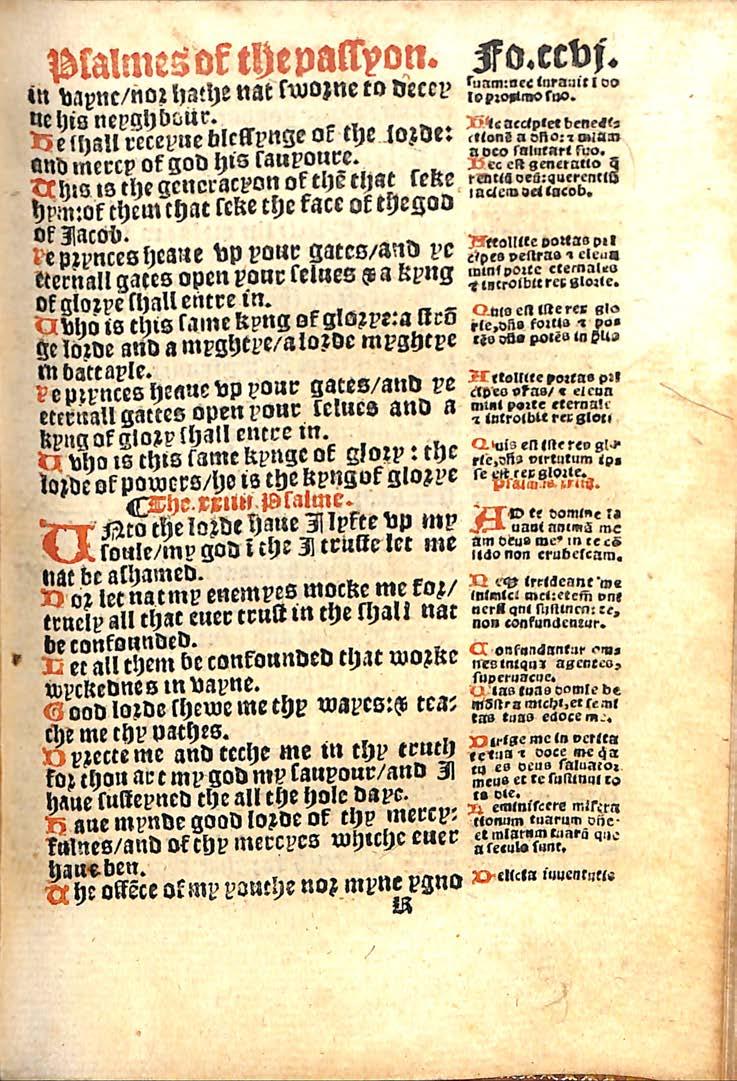 Psalmes of the passyon.
Fo.ccvj.
in vayne/nor hathe nat sworne to decey
ue his neyghbour.
He shall receyue blessynge of the lorde:
and mercy of god his sauyoure.
This is the generacyon of thē that seke
hym:of them that seke the face of the god
of Jacob.
Ye prynces heaue vp your gates/and ye
eternall gates open your selues & a kyng
of glorye shall entre in.
Who is this same kyng of glorye:a strō
ge lorde and a myghtye/a lorde myghtye
in battayle.
Ye prynces heaue vp your gates/and ye
eternall gattes open your selues and a
kyng of glory shall entre in.
Who is this same kynge of glory : the
lorde of powers/he is the kyng of glorye
¶The.xxiiii.Psalme.
UNto the lorde haue I lyfte vp my
soule/my god ī the I truste let me
nat be ashamed.
Nor let nat my enemyes mocke me for/
truely all that euer trust in the shall nat
be confounded.
Let all them be confounded that worke
wyckednes in vayne.
Good lorde shewe me thy wayes:& tea:
che me thy pathes.
Dyrecte me and teche me in thy truth
for thou art my god my sauyour/and I
haue susteyned the all the hole daye.
Haue mynde good lorde of thy mercy:
fulnes/and of thy mercyes whiche euer
haue ben.
The offēce of my youthe nor myne ygno
K
suam:nec iurauit ī do
lo proximo suo.
Hic accipiet benedi-
ctionē a dño:⁊ miam
a deo salutari suo.
Hec est generatio q̄
rentiū deū:querentiū
faciem dei iacob.
Attollite portas pri
cipes vestras ⁊ eleua
mini porte eternales
⁊ introibit rex glorie.
Quis est iste rex glo
rie,dñs fortis ⁊ po
tēs dñs potēs in p̄lio
Attollite portas pri
cipes vr̄as/ ⁊ eleua
mini porte eternale
⁊ introibit rex glori
Quis est iste rex glo
rie,dñs virtutum ip
se est rex glorie.
Psalmus.xxiiij.
AD te domine le
uaui animā me
am deus meꝰ in te cō
fido non erubescam.
Neqꝫ irrideant me
inimici mei:etem̄ vni
uersi qui sustinent te,
non confundentur.
Confundantur om
nes iniqua agentes,
superuacue.
Uias tuas domīe de
mōstra michi,et semi
tas tuas edoce me.
Dirige me in verita
te tua ⁊ doce me q̄a
tu es deus saluator
meus et te sustinui to
ta die.
Reminiscere misera
tionum tuarum dñe
et miaʀum tuarū que
a seculo sunt.
Delicta iuuentutis